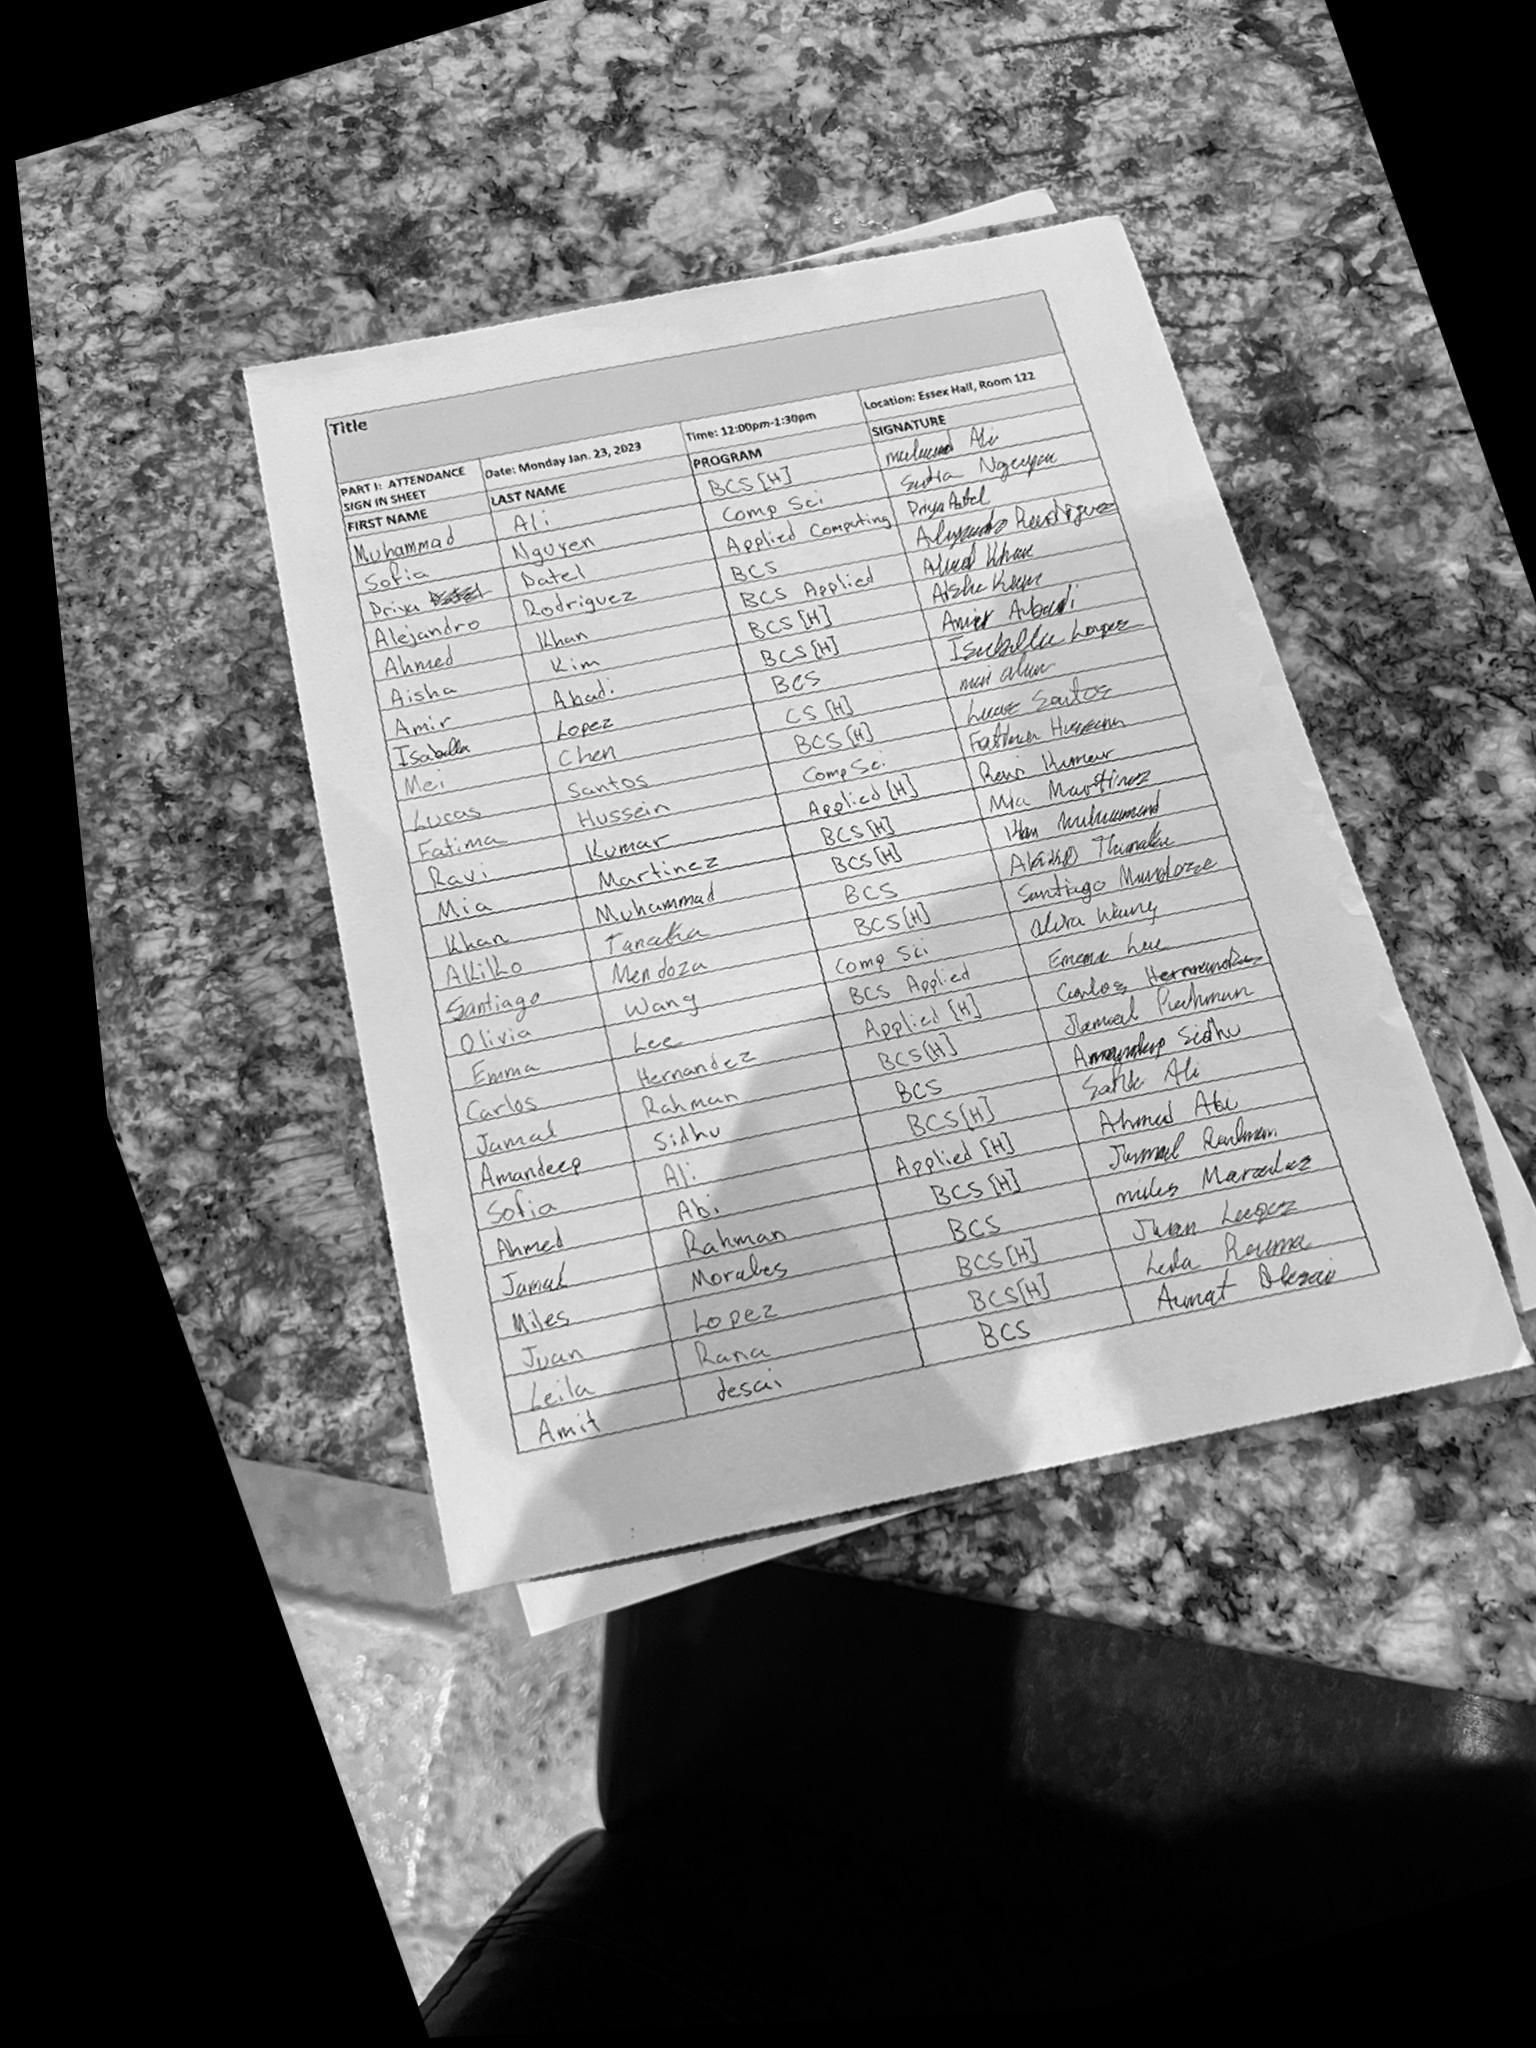 Title
PART I: ATTENDANCE SIGN IN SHEET Date: Monday Jan. 23, 2023 Time: 12:00pm-1:30pm Location: Essex Hall, Room 122
FIRST NAME LAST NAME PROGRAM SIGNATURE
Muhammad Ali BCS [H] Ali
Sofia Nguyen Comp Sci Nguyen
Priya Patel Applied Computing Priya Patel
Alejandro Rodriguez BCS Alejandro Rodriguez
Ahmed Khan BCS Applied Ahmed Khan
Aisha Kim BCS [H] Aisha Kim
Amir Abadi BCS [H] Amir Abadi
Isabella Lopez BCS Isabella Lopez
Mei Chen CS [H] mei chen
Lucas Santos BCS [H] Lucas Santos
Fatima Hussein Comp Sci Fatima Hussein
Ravi Kumar Applied [H] Ravi Kumar
Mia Martinez BCS [H] Mia Martinez
Khan Muhammad BCS [H] Khan Muhammad
Akiko Tanaka BCS
Santiago Mendoza BCS [H] Santiago Mendoza
Olivia Wang Comp Sci Wang
Emma Lee BCS Applied Emma Lee
Carlos Hernandez Applied [H] Carlos Hernandez
Jamal Rahman BCS [H] Jamal Rahman
Amandeep Sidhu BCS Amandeep Sidhu
Sofia Ali BCS [H] Ali
Ahmed Abi Applied [H] Ahmed Abi
Jamal Rahman BCS [H] Jamal Rahman
Miles Morales BCS miles
Juan Lopez BCS [H] Juan Lopez
Leila Rana BCS [H] Leila
Amit desai BCS